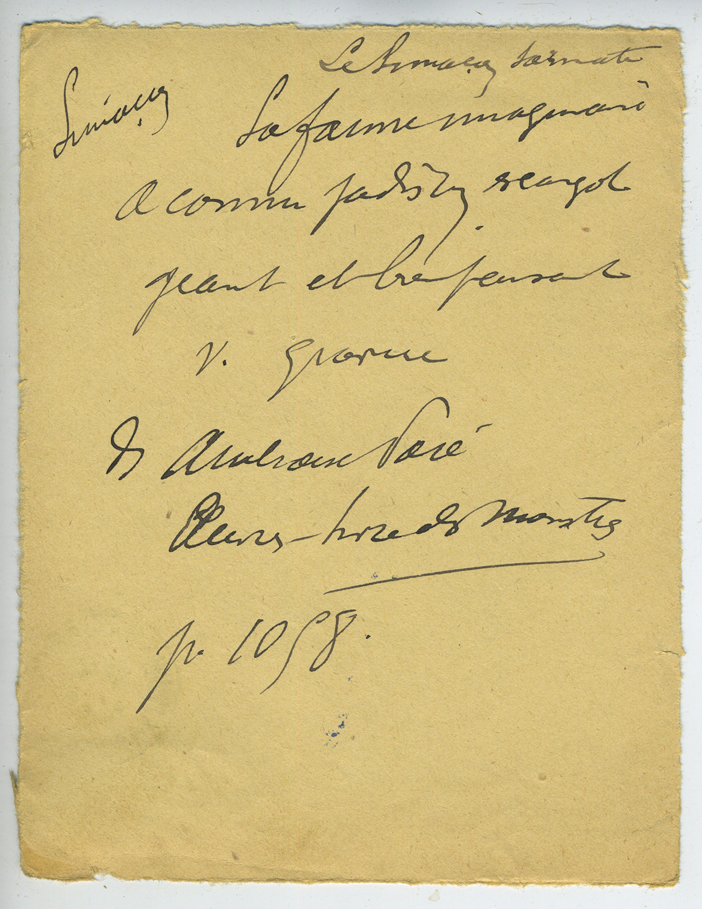 Le Limaçon Sarmate
Limaçon
La faune imaginaire
a connu jadis un escargot
geant et
v. gravure
ds Ambroise Paré
Œuvres - Livre des Monstres
p. 1058.